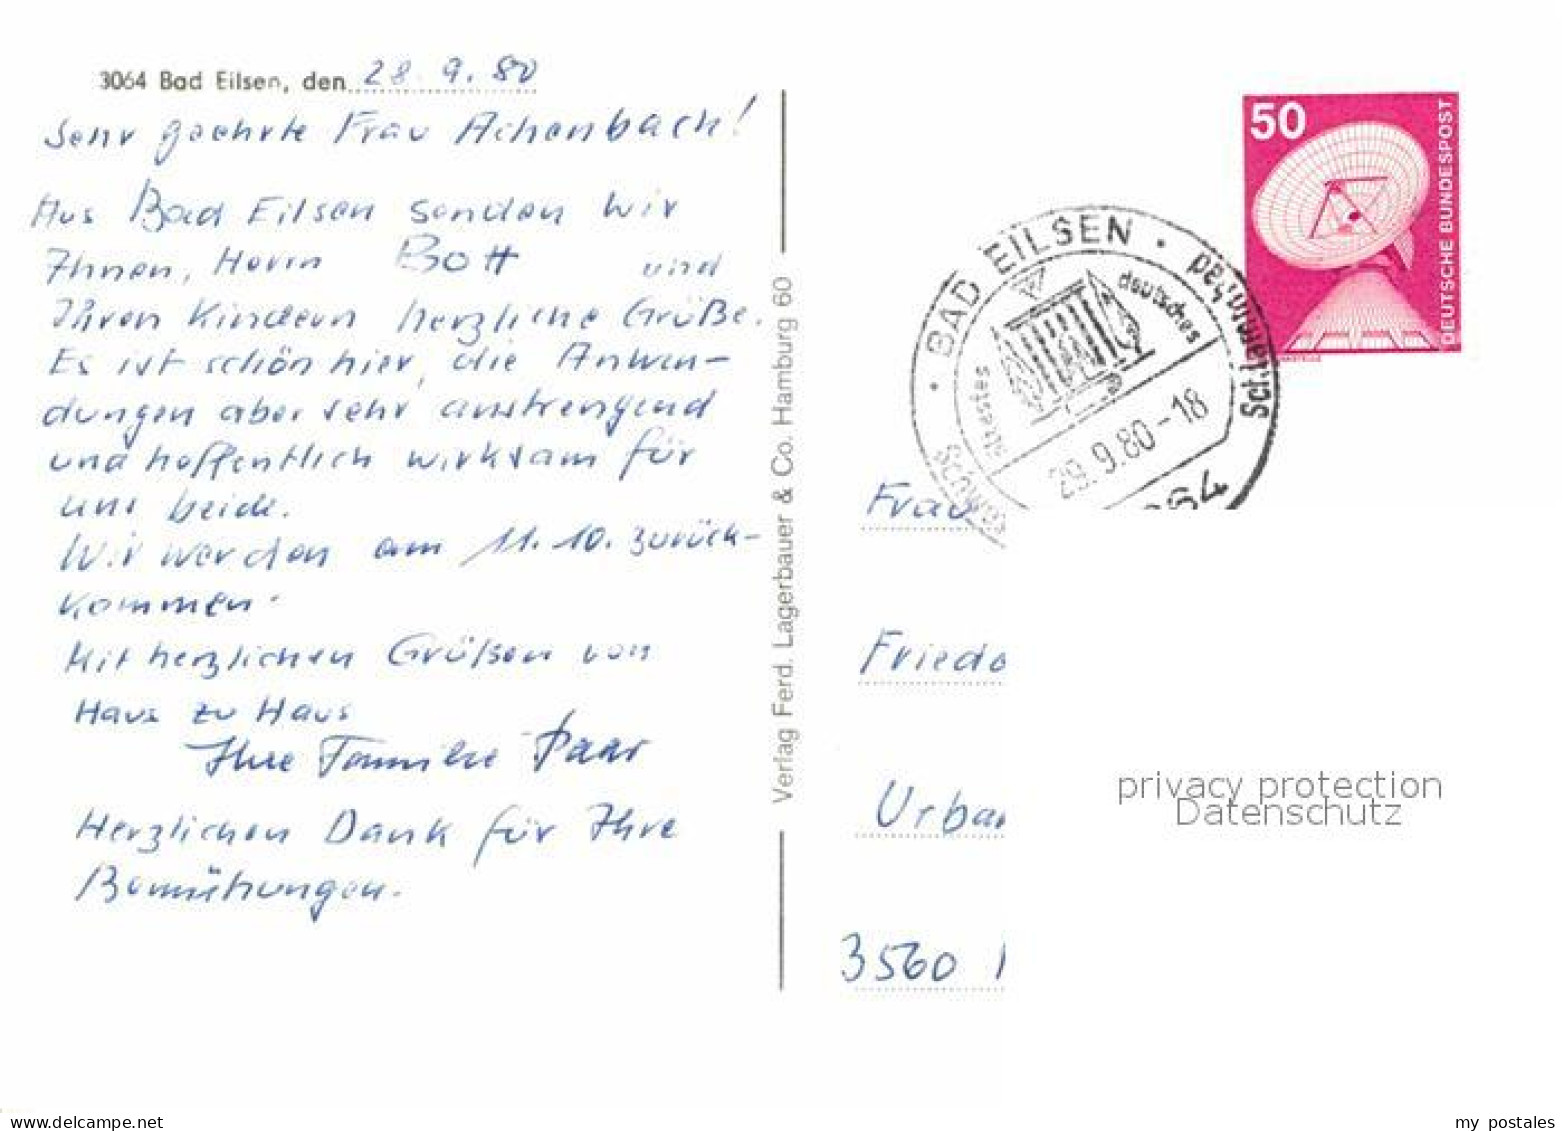 3064 Bad Eilsen, den 28.9.80
Sehr geehrte Frau Achenbach!
Aus Bad Eilsen senden wir
Ihnen, Herrn Bott und
Ihren Kindern herzliche Grüße.
Es ist schön hier, die Anwen-
dungen aber sehr anstrengend
und hoffentlich wirksam für
uns beide.
Wir werden am 11.10. zurück-
kommen.
Mit herzlichen Grüßen von
Haus zu Haus
Ihre Familie Paar
Herzlichen Dank für Ihre
Bemühungen.
Verlag Ferd. Lagerbauer & Co. Hamburg 60
50
DEUTSCHE BUNDESPOST
BAD EILSEN
ältestes
deutsches
Schlammbad
29.9.80-18
Frau
Friede
Urba
3560
privacy protection
Datenschutz
www.delcampe.net
my_postales